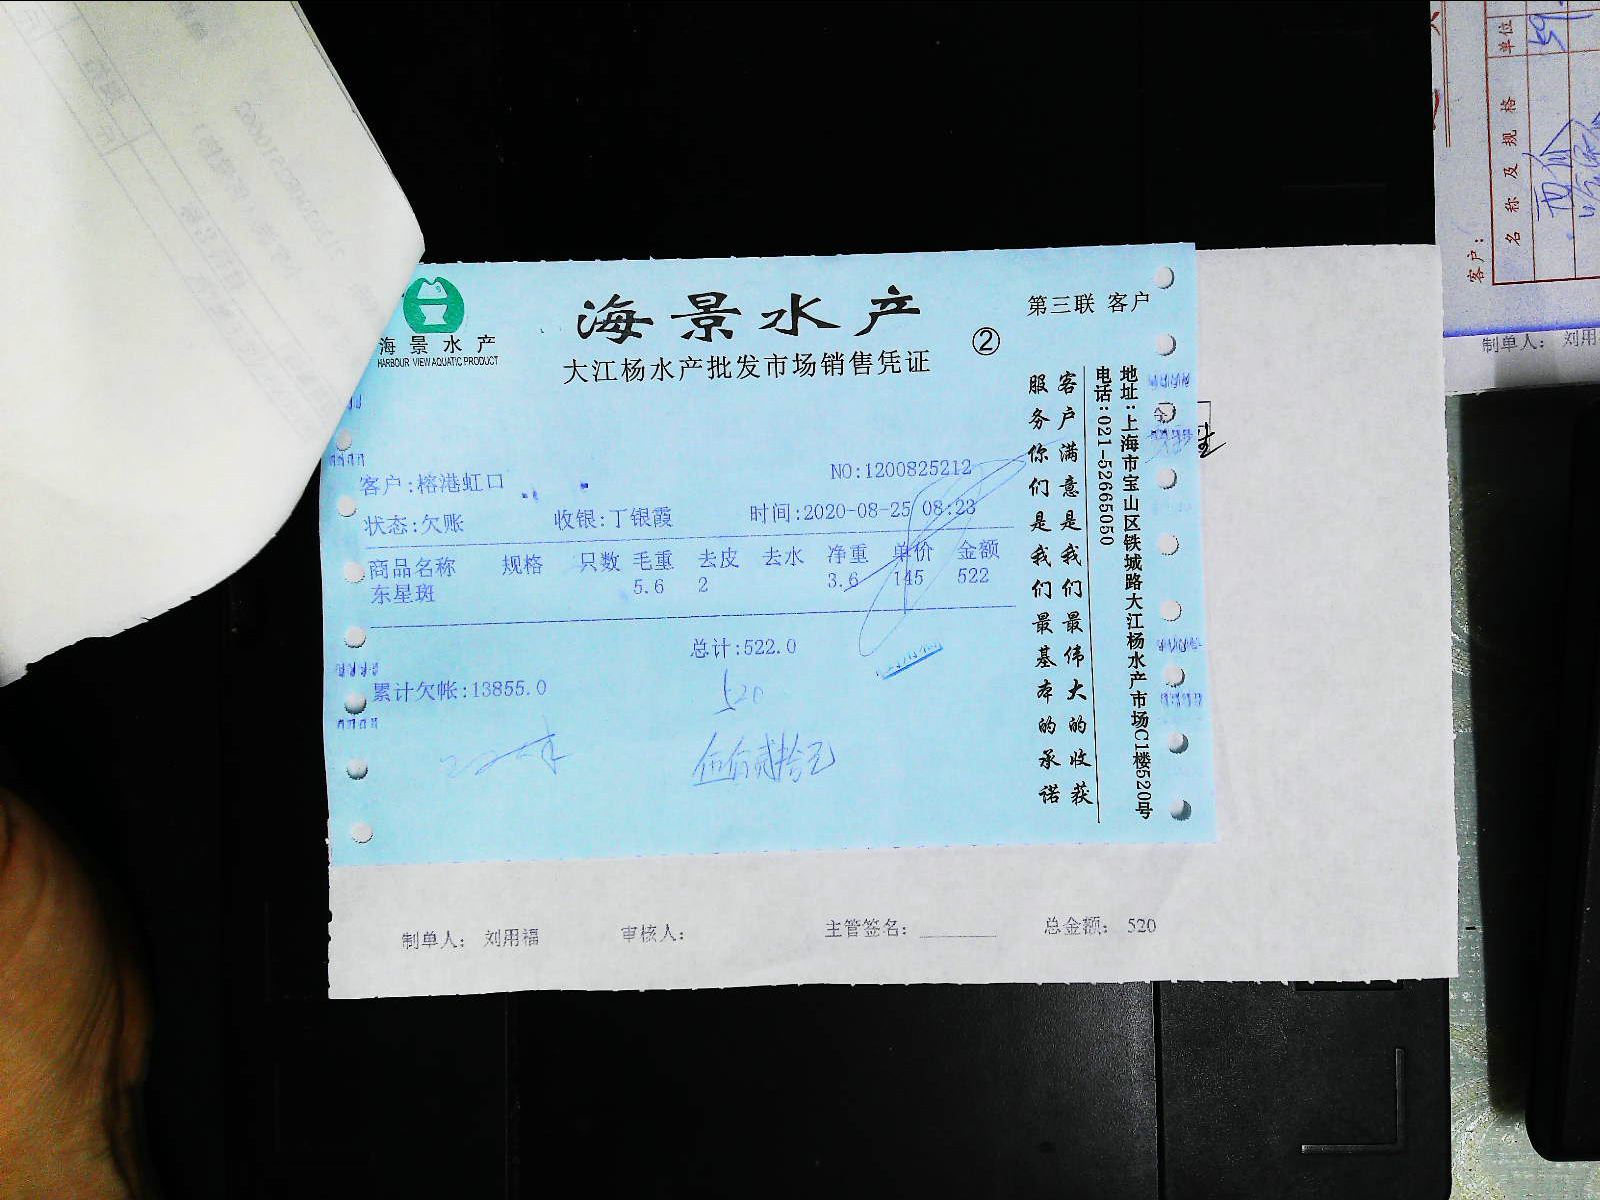 海景水产
HARBOUR VIEW AQUATIC PRODUCT
海景水产
大江杨水产批发市场销售凭证
②
第三联 客户
客户:榕港虹口
NO:1200825212
状态:欠账 收银:丁银霞 时间:2020-08-25 08:23
商品名称 规格 只数 毛重 去皮 去水 净重 单价 金额
东星斑 5.6 2 3.6 145 522
总计:522.0
累计欠帐:13855.0
520
伍佰贰拾元
客户满意是我们最伟大的收获
服务你们是我们最基本的承诺
地址:上海市宝山区铁城路大江杨水产市场C1楼520号
电话:021-52665050
制单人: 刘用福 审核人: 主管签名: 总金额: 520
客户:
名称及规格 单位
制单人: 刘用